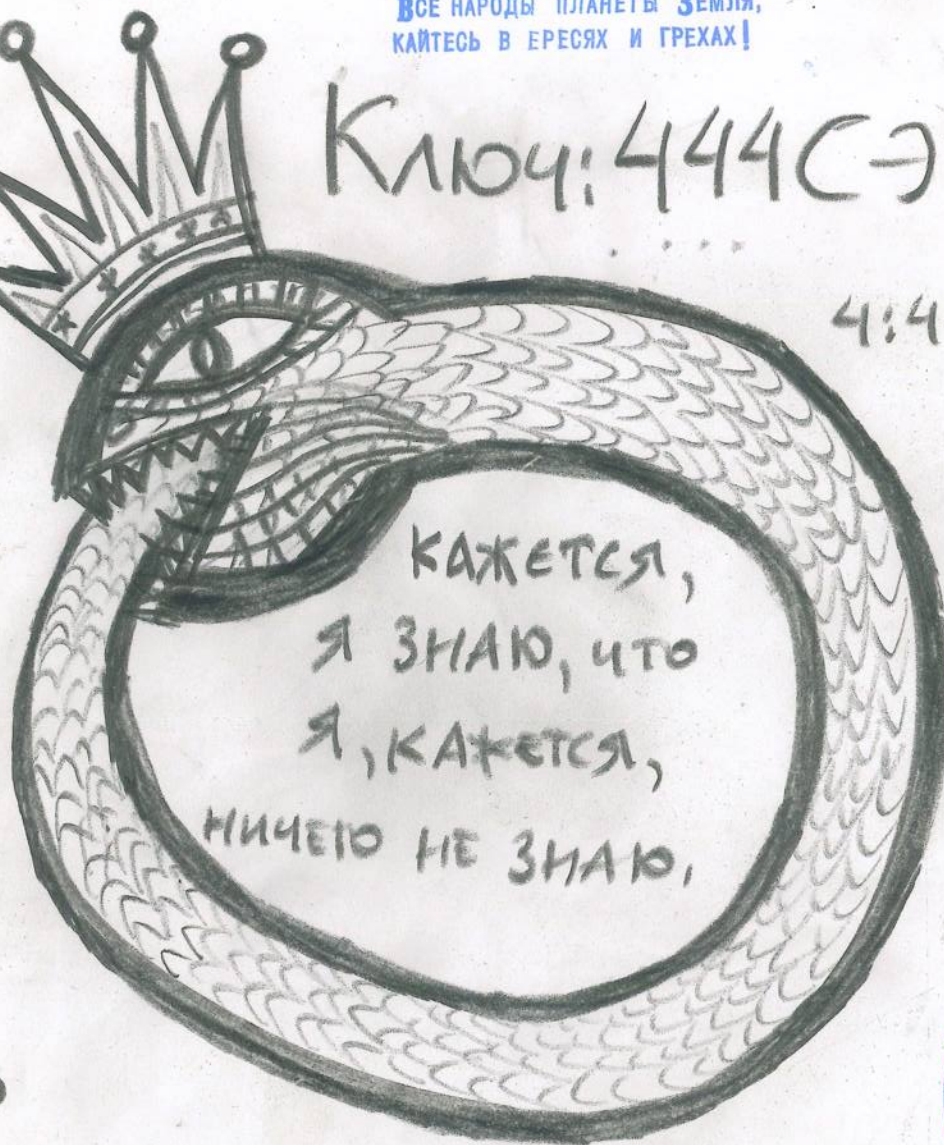 ВСЕ НАРОДЫ ПЛАНЕТЫ ЗЕМЛЯ,
КАЙТЕСЬ В ЕРЕСЯХ И ГРЕХАХ!
Ключ: 444СЭ
4:4
КАЖЕТСЯ,
Я ЗНАЮ, ЧТО
Я, КАЖЕТСЯ,
НИЧЕГО НЕ ЗНАЮ.